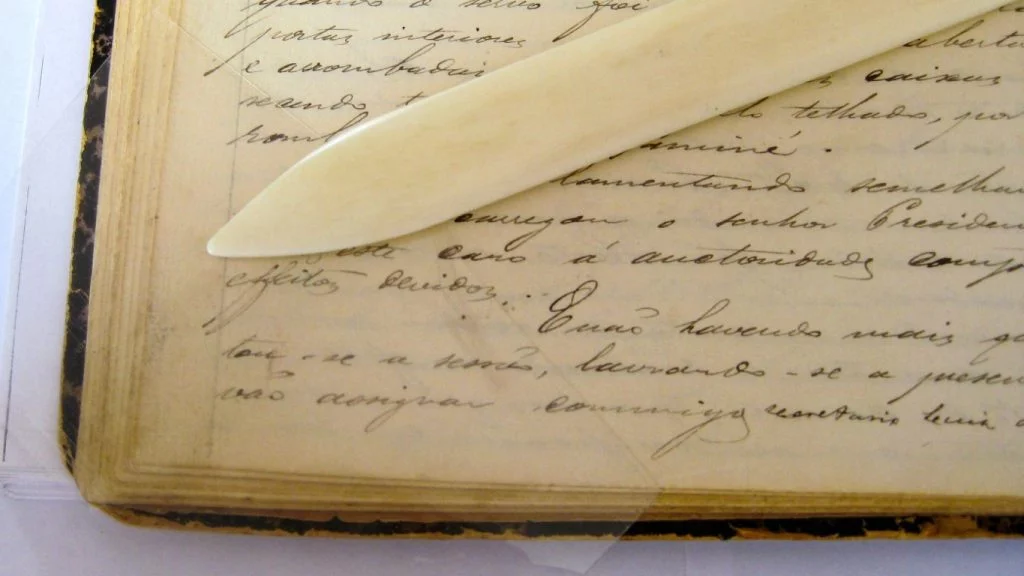 quando o servo foi
portas interiores aberto
e arrombadas caixas
telhado, por
chaminé.
lamentando semelhan
carregou o senhor Presiden
este caso á auctoridade comp
effeitos devidos.
E não havendo mais
tou-se a sessão, lavrando-se a presen
vão assignar commigo secretario